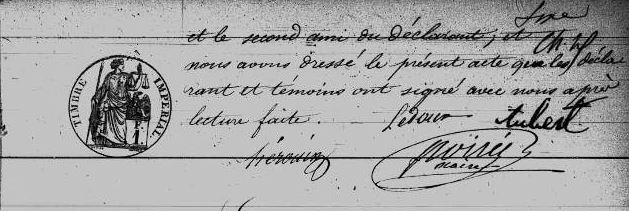 et le second ami du déclarant; et
nous avons dressé le présent acte que les décla
rant et témoins ont signé avec nous après
lecture faite. Ledoux Aubert
maire
TIMBRE IMPÉRIAL